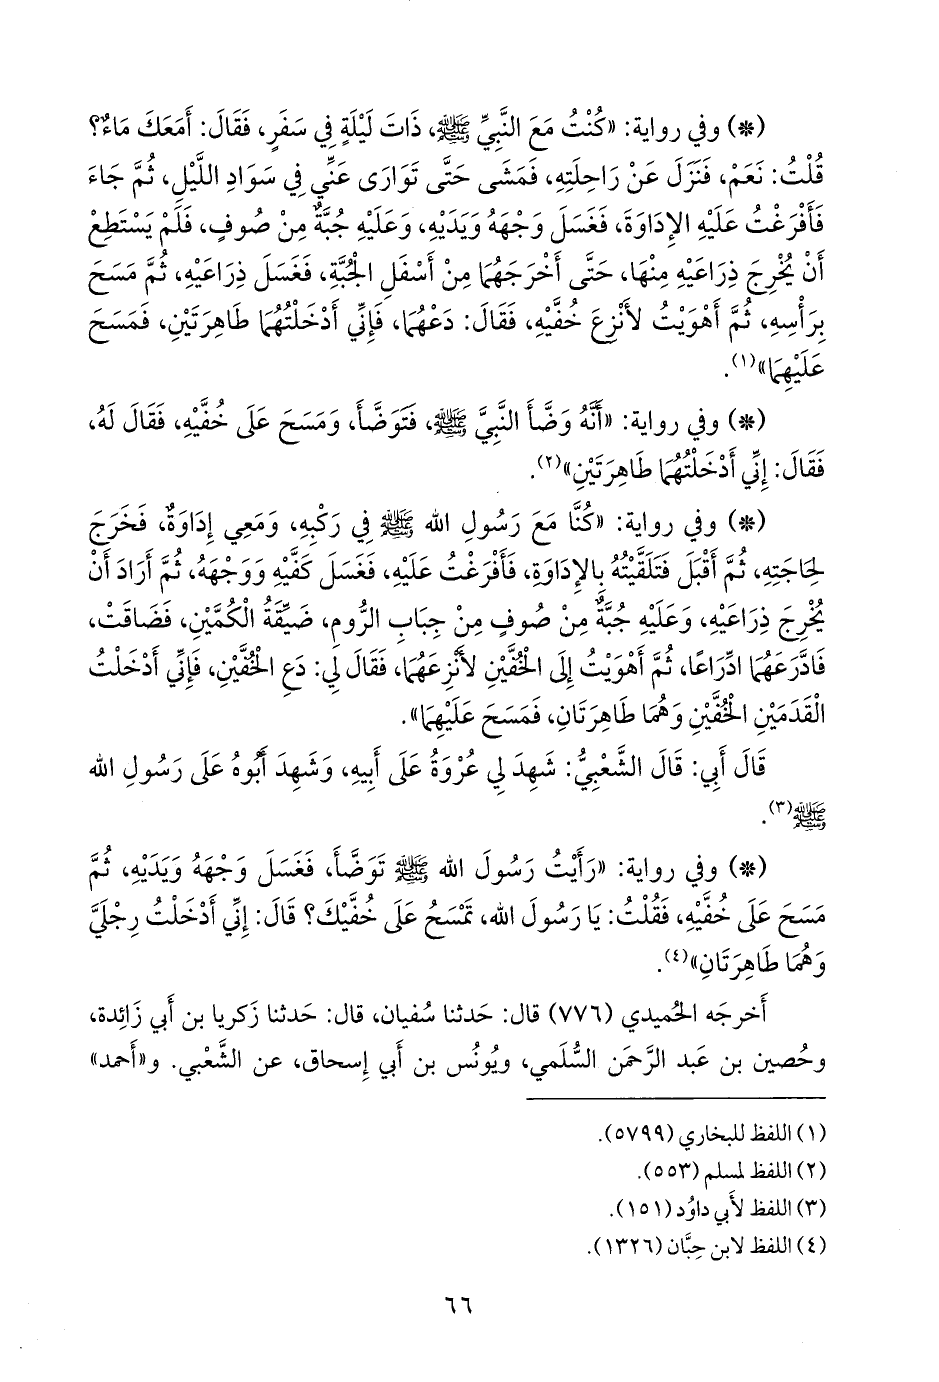 (*) وفي رواية: «كُنْتُ مَعَ النَّبِيِّ ﷺ، ذَاتَ لَيْلَةٍ فِي سَفَرٍ، فَقَالَ: أَمَعَكَ مَاءٌ؟
قُلْتُ: نَعَمْ، فَنَزَلَ عَنْ رَاحِلَتِهِ، فَمَشَى حَتَّى تَوَارَى عَنِّي فِي سَوَادِ اللَّيْلِ، ثُمَّ جَاءَ
فَأَفْرَغْتُ عَلَيْهِ الإِدَاوَةَ، فَغَسَلَ وَجْهَهُ وَيَدَيْهِ، وَعَلَيْهِ جُبَّةٌ مِنْ صُوفٍ، فَلَمْ يَسْتَطِعْ
أَنْ يُخْرِجَ ذِرَاعَيْهِ مِنْهَا، حَتَّى أَخْرَجَهُمَا مِنْ أَسْفَلِ الْجُبَّةِ، فَغَسَلَ ذِرَاعَيْهِ، ثُمَّ مَسَحَ
بِرَأْسِهِ، ثُمَّ أَهْوَيْتُ لأَنْزِعَ خُفَّيْهِ، فَقَالَ: دَعْهُمَا، فَإِنِّي أَدْخَلْتُهُمَا طَاهِرَتَيْنِ، فَمَسَحَ
عَلَيْهِمَا»(١).
(*) وفي رواية: «أَنَّهُ وَضَّأَ النَّبِيَّ ﷺ، فَتَوَضَّأَ، وَمَسَحَ عَلَى خُفَّيْهِ، فَقَالَ لَهُ،
فَقَالَ: إِنِّي أَدْخَلْتُهُمَا طَاهِرَتَيْنِ»(٢).
(*) وفي رواية: «كُنَّا مَعَ رَسُولِ الله ﷺ فِي رَكْبِهِ، وَمَعِي إِدَاوَةٌ، فَخَرَجَ
لِحَاجَتِهِ، ثُمَّ أَقْبَلَ فَتَلَقَّيْتُهُ بِالإِدَاوَةِ، فَأَفْرَغْتُ عَلَيْهِ، فَغَسَلَ كَفَّيْهِ وَوَجْهَهُ، ثُمَّ أَرَادَ أَنْ
يُخْرِجَ ذِرَاعَيْهِ، وَعَلَيْهِ جُبَّةٌ مِنْ صُوفٍ مِنْ جِبَابِ الرُّومِ، ضَيِّقَةُ الْكُمَّيْنِ، فَضَاقَتْ،
فَادَّرَعَهُمَا ادِّرَاعًا، ثُمَّ أَهْوَيْتُ إِلَى الْخُفَّيْنِ لأَنْزِعَهُمَا، فَقَالَ لِي: دَعِ الْخُفَّيْنِ، فَإِنِّي أَدْخَلْتُ
الْقَدَمَيْنِ الْخُفَّيْنِ وَهُمَا طَاهِرَتَانِ، فَمَسَحَ عَلَيْهِمَا».
قَالَ أَبِي: قَالَ الشَّعْبِيُّ: شَهِدَ لِي عُرْوَةُ عَلَى أَبِيهِ، وَشَهِدَ أَبُوهُ عَلَى رَسُولِ الله
ﷺ(٣).
(*) وفي رواية: «رَأَيْتُ رَسُولَ الله ﷺ تَوَضَّأَ، فَغَسَلَ وَجْهَهُ وَيَدَيْهِ، ثُمَّ
مَسَحَ عَلَى خُفَّيْهِ، فَقُلْتُ: يَا رَسُولَ الله، تَمْسَحُ عَلَى خُفَّيْكَ؟ قَالَ: إِنِّي أَدْخَلْتُ رِجْلَيَّ
وَهُمَا طَاهِرَتَانِ»(٤).
أَخرجَه الحُميدي (٧٧٦) قال: حَدثنا سُفيان، قال: حَدثنا زَكريا بن أَبي زَائِدة،
وحُصين بن عَبد الرَّحمَن السُّلَمي، ويُونُس بن أَبي إِسحاق، عن الشَّعْبي. و«أحمد»
(١) اللفظ للبخاري (٥٧٩٩).
(٢) اللفظ لمسلم (٥٥٣).
(٣) اللفظ لأَبي داوُد (١٥١).
(٤) اللفظ لابن حِبَّان (١٣٢٦).
٦٦